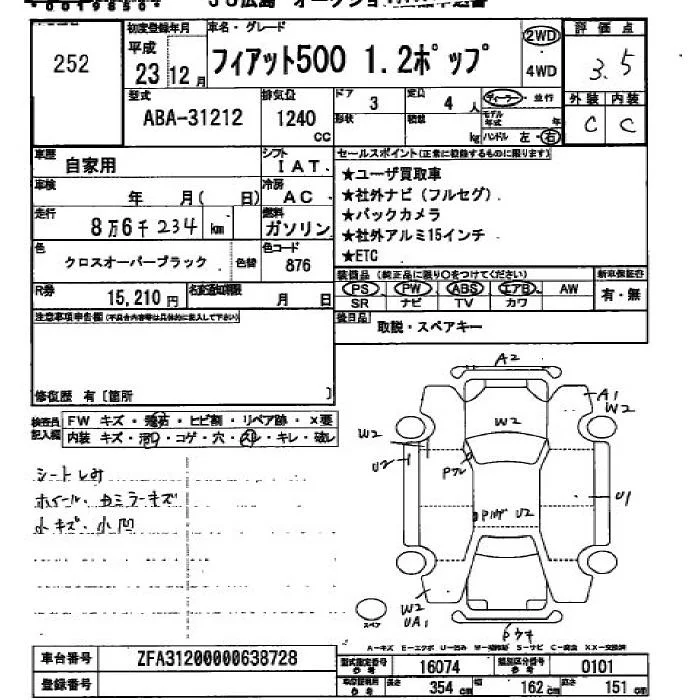 252
初度登録年月
平成
23 12 月
車名・グレード
フィアット500 1.2ポップ
2WD
4WD
評価点
3.5
外装 内装
C C
型式
ABA-31212
排気量
1240
CC
ドア 3
定員 4 人
ディーラー ・ 並行
形状
積載
kg
モデル年式 年
ハンドル 左・右
車歴
自家用
シフト
IAT
車検
年 月( 日)
冷房
AC
走行
8万6千234 km
燃料
ガソリン
色
クロスオーバーブラック
色替
色コード
876
R券
15,210 円
名変通知期限
月 日
セールスポイント(正常に機能するものに限ります)
★ユーザ買取車
★社外ナビ(フルセグ)
★バックカメラ
★社外アルミ15インチ
★ETC
装備品(純正品に限り○をつけてください)
PS PW ABS エアB AW
SR ナビ TV カワ
新車保証書
有・無
後日品
取説・スペアキー
注意事項申告欄(不具合内容等は具体的に記入して下さい)
修復歴 有〔箇所 〕
検査員記入欄
FW キズ・飛石・ヒビ割・リペア跡・X要
内装 キズ・汚れ・コゲ・穴・スレ・キレ・破レ
シートしみ
ホイール、カミラーキズ
小キズ、小凹
A2
A1
W2
W2
W2
U2
Pワレ
U2
U1
W2
UA1
スペア
A-キズ E-エクボ U-凹み W-補修跡 S-サビ C-腐食 XX-交換済
車台番号
ZFA31200000638728
登録番号
型式指定番号
16074
類別区分番号
0101
長さ 354 cm
幅 162 cm
高さ 151 cm